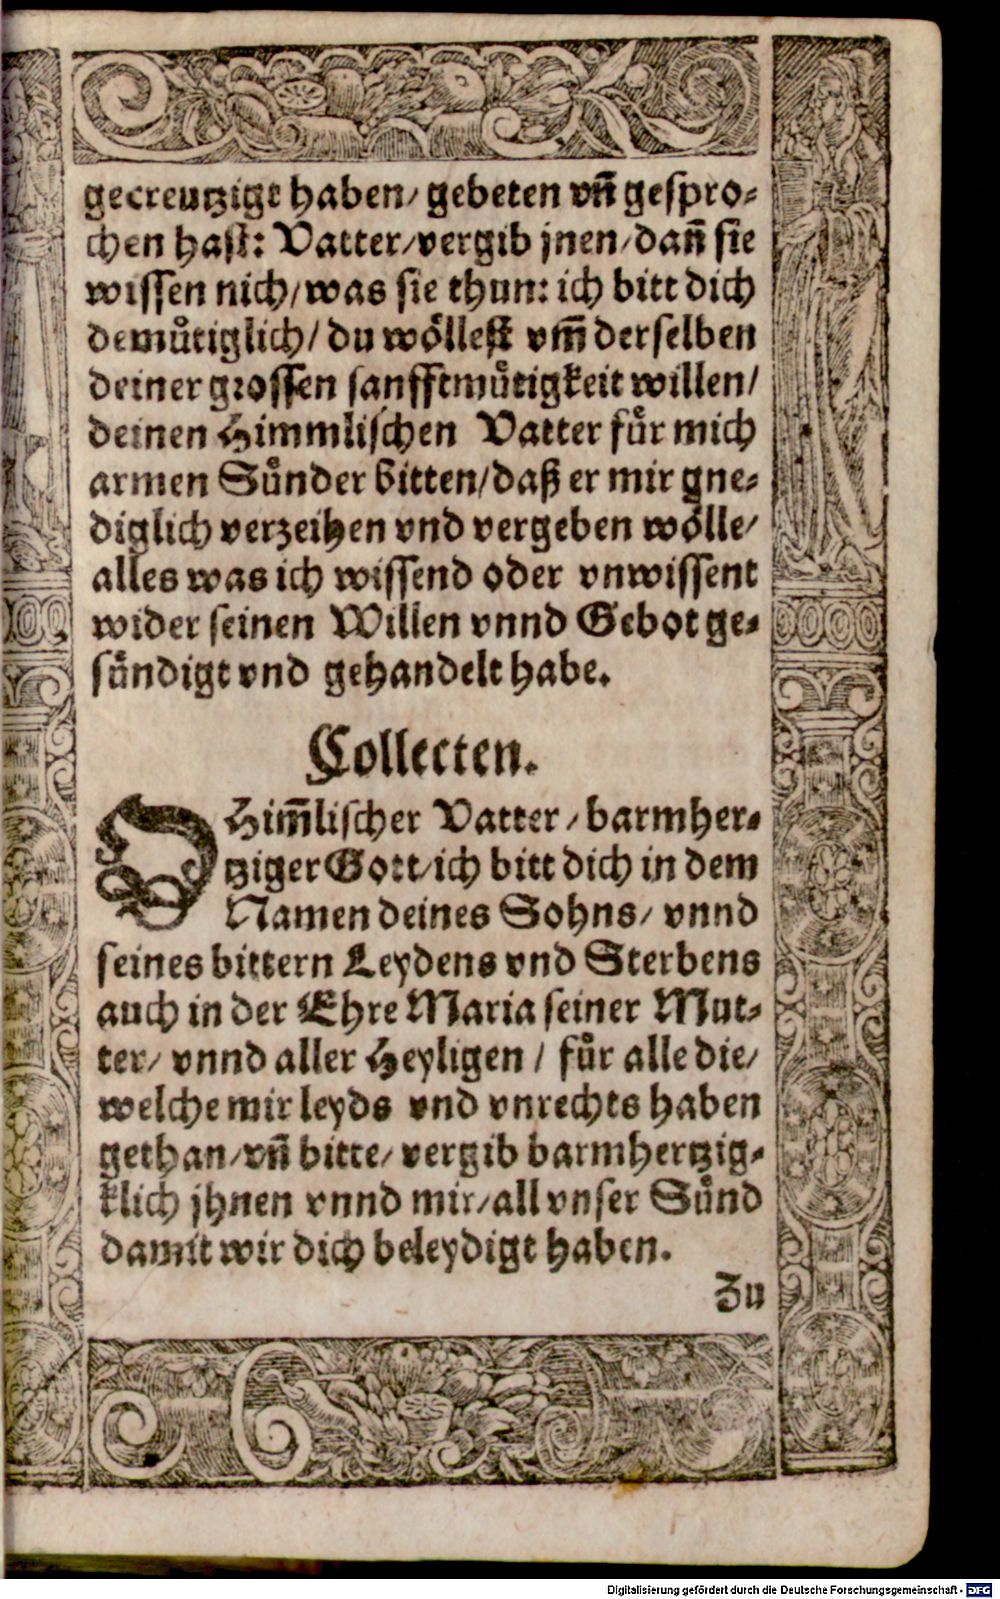 gecreutzigt haben/ gebeten vñ gespro-
chen hast: Vatter/vergib jnen/dañ sie
wissen nich/was sie thun: ich bitt dich
demuͤtiglich/ du woͤllest vm̃ derselben
deiner grossen sanfftmuͤtigkeit willen/
deinen Himmlischen Vatter fuͤr mich
armen Suͤnder bitten/daß er mir gne-
diglich verzeihen vnd vergeben woͤlle/
alles was ich wissend oder vnwissent
wider seinen Willen vnnd Gebot ge-
suͤndigt vnd gehandelt habe.
Collecten.
O Him̃lischer Vatter/ barmher-
tziger Gott/ich bitt dich in dem
Namen deines Sohns/ vnnd
seines bittern Leydens vnd Sterbens
auch in der Ehre Maria seiner Mut-
ter/ vnnd aller Heyligen/ fuͤr alle die/
welche mir leyds vnd vnrechts haben
gethan/vñ bitte/ vergib barmhertzig-
klich jhnen vnnd mir/all vnser Suͤnd
damit wir dich beleydigt haben.
Zu
Digitalisierung gefördert durch die Deutsche Forschungsgemeinschaft - DFG